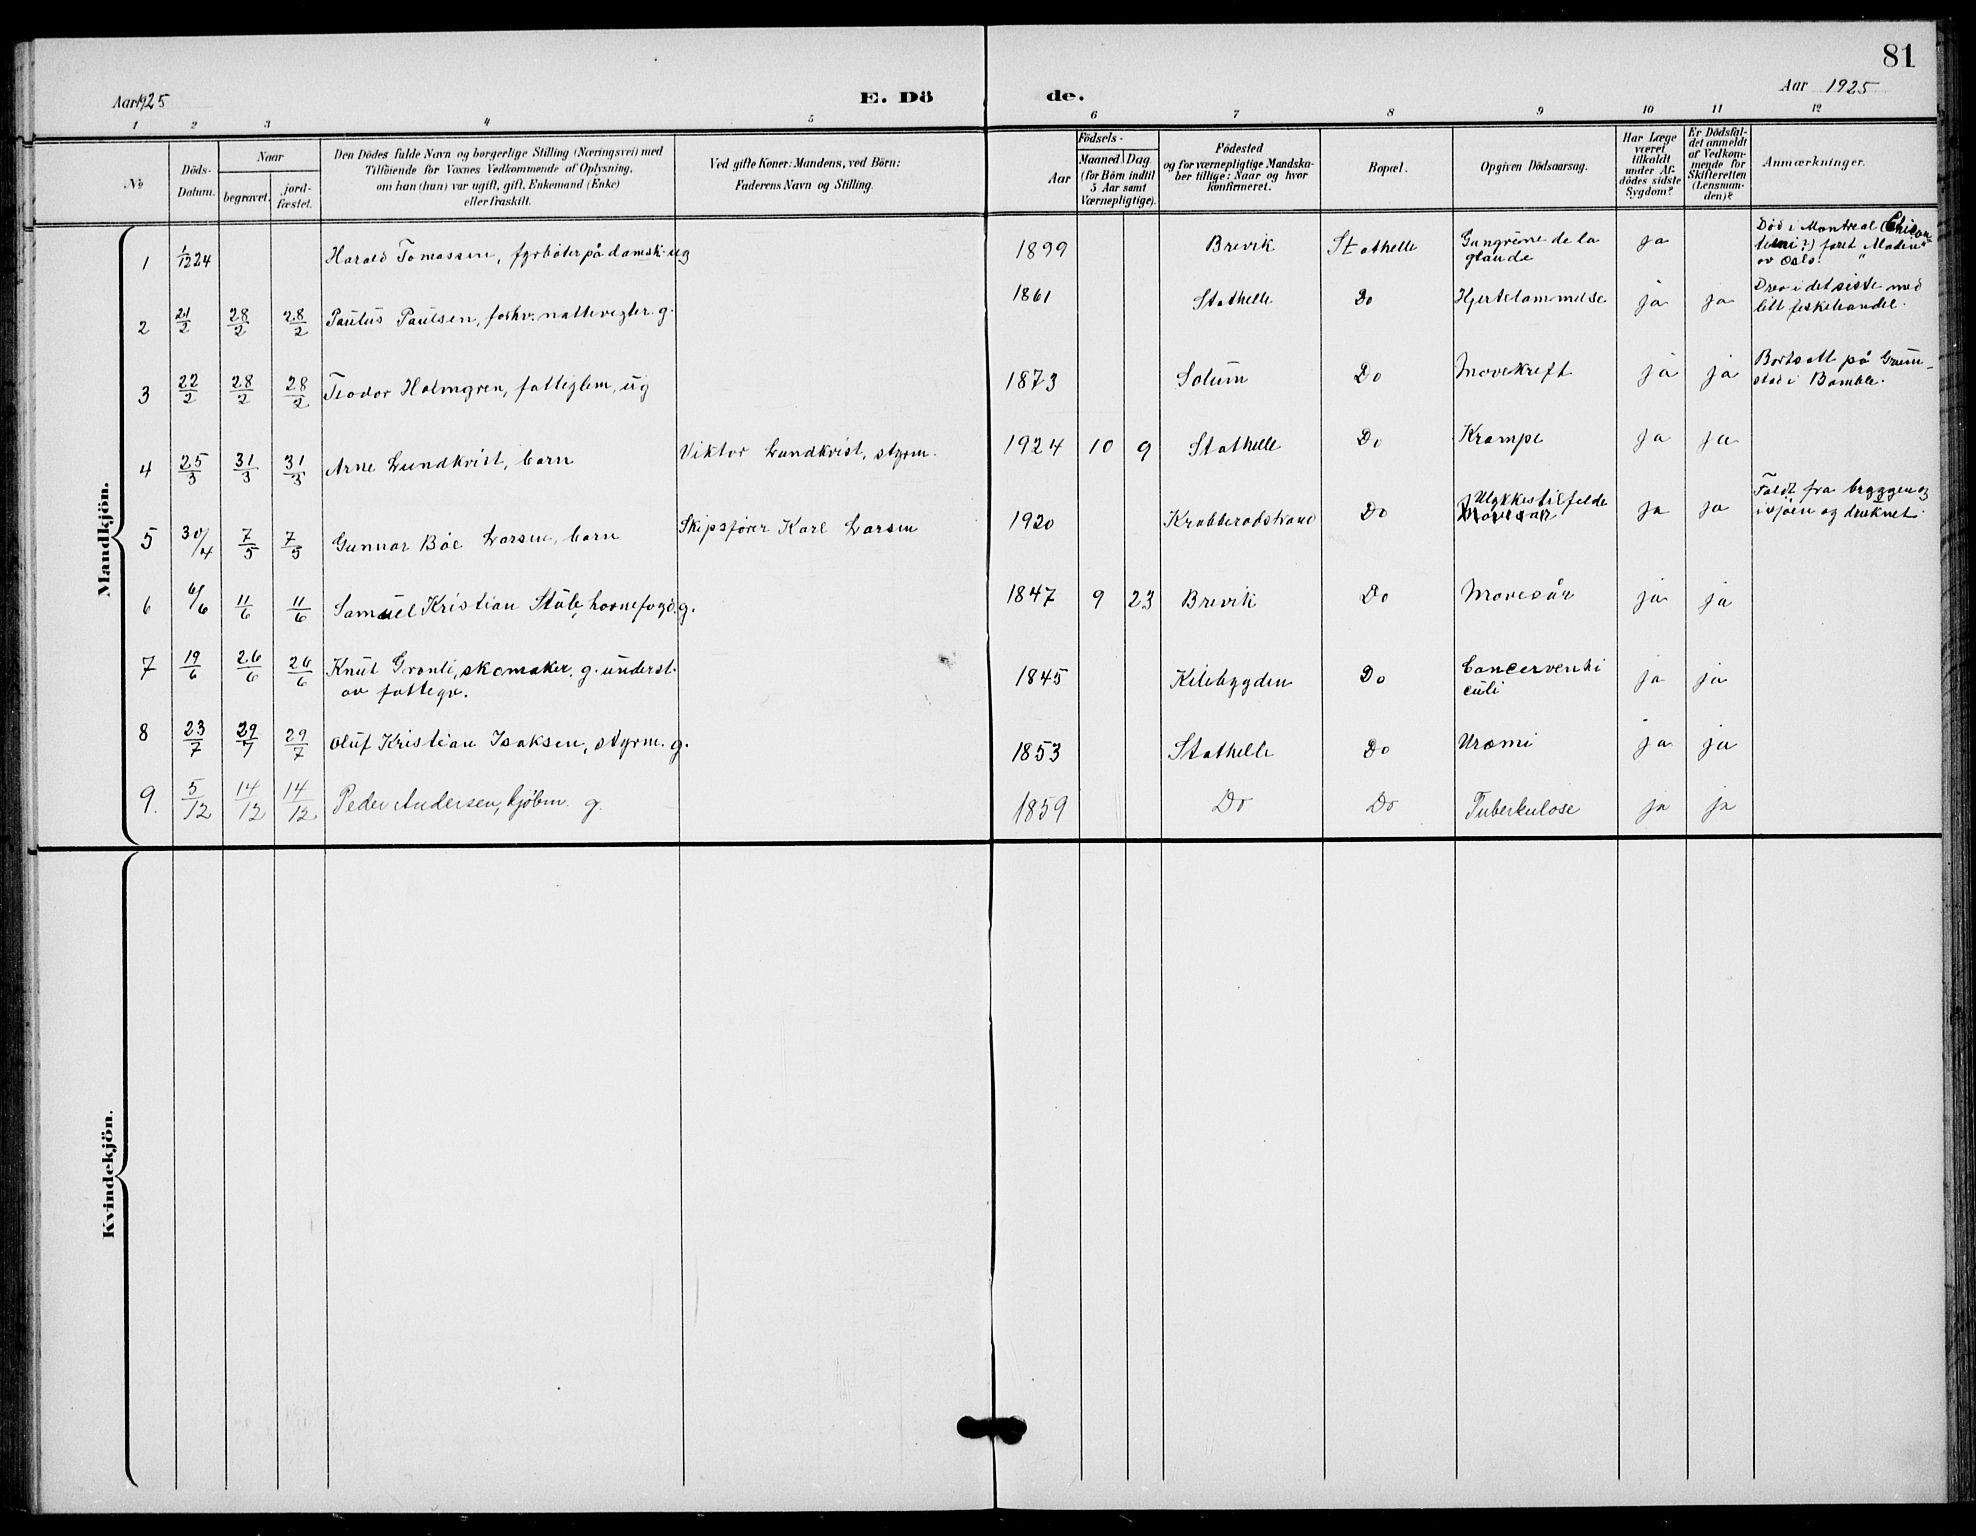 81
Aar 1925
E. Dö de.
Aar 1925
1 2 3 4 5 6 7 8 9 10 11 12
No
Döds-Datum.
Naar
begravet.
jord-fæstet.
Den Dödes fulde Navn og borgerlige Stilling (Næringsvei) med
Tilföiende for Voxnes Vedkommende af Oplysning,
om han (hun) var ugift, gift, Enkemand (Enke)
eller fraskilt.
Ved gifte Koner: Mandens, ved Börn:
Faderens Navn og Stilling.
Födsels-
Aar
Maaned Dag
(for Börn indtil
5 Aar samt
Værnepligtige).
Födested
og for værnepligtige Mandska-
ber tillige: Naar og hvor
konfirmeret.
Bopæl.
Opgiven Dödsaarsag.
Har Læge
været
tilkaldt
under Af-
dödes sidste
Sygdom?
Er Dödsfal-
det anmeldt
af Vedkom-
mende for
Skifteretten
(Lensman-
den)?
Anmærkninger.
Mandkjön.
1 1/12 24 Harald Tomassen, fyrböter på damsk. ug 1899 Brevik Stathelle Gangrène de la glande ja Død i Montreal
av Oslo.
2 21/2 28/2 28/2 Paulus Paulsen, forhv. nattevegter. g. 1861 Stathelle Do Hjertelammelse ja ja Drev i det siste med
litt fiskehandel.
3 22/2 28/2 28/2 Teodor Holmgren, fattiglem, ug 1873 Solum Do Mavekreft ja ja Bortsatt på Grum-
stad i Bamble.
4 25/3 31/3 31/3 Arne Lundkvist, barn Viktor Lundkvist, styrm. 1924 10 9 Stathelle Do Krampe ja ja
5 30/4 7/5 7/5 Gunnar Böe Larsen, barn Skipsfører Karl Larsen 1920 Krabberødstrand Do Ulykkestilfelde ja ja Faldt fra bryggen og
i sjøen og druknet.
6 6/6 11/6 11/6 Samuel Kristian Ståle, havnefogd. g. 1847 9 23 Brevik Do Mavesår ja ja
7 19/6 26/6 26/6 Knut Grønli, skomaker, g. underst.
av fattigv. 1845 Kilebygden Do Cancer ventri
culi ja ja
8 23/7 29/7 29/7 Oluf Kristian Isaksen, styrm. g. 1853 Stathelle Do Uræmi ja ja
9. 5/12 14/12 14/12 Peder Andersen, kjøbm. g. 1859 Do Do Tuberkulose ja ja
Kvindekjön.